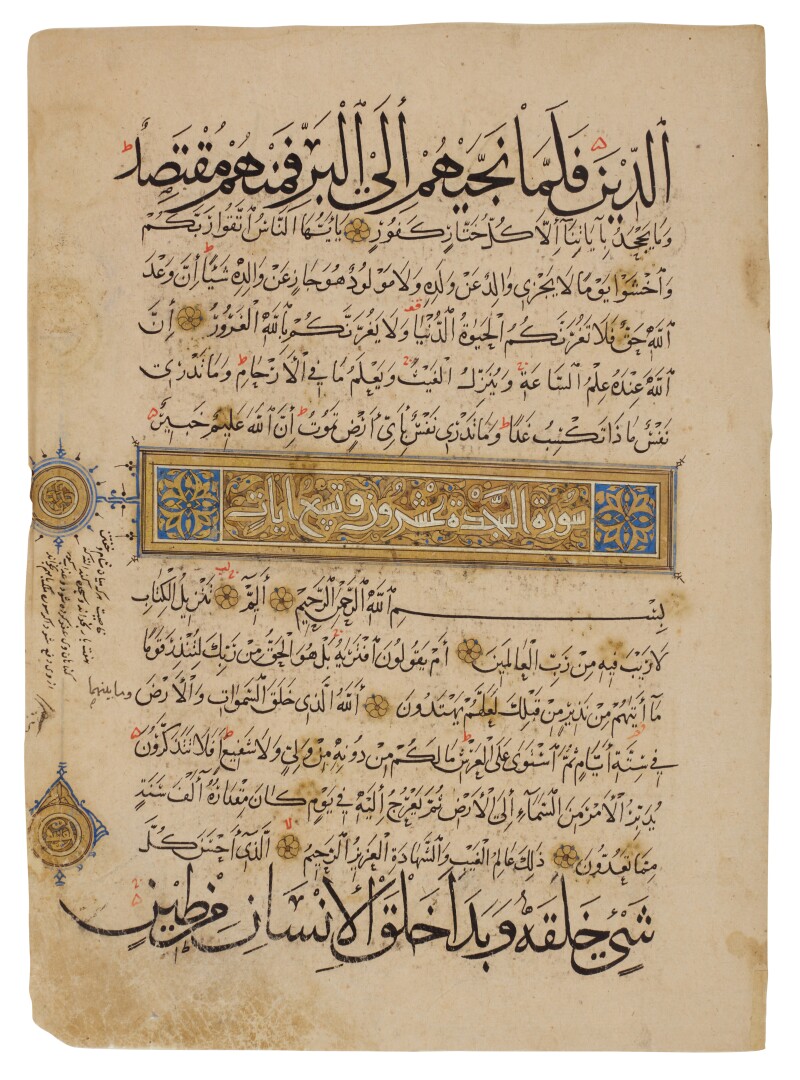 ٱلدِّينَ فَلَمَّا نَجَّيٰهُمْ إِلَى ٱلْبَرِّ فَمِنْهُمْ مُقْتَصِدٌ
وَمَا يَجْحَدُ بِآيَاتِنَا إِلَّا كُلُّ خَتَّارٍ كَفُورٍ يَا أَيُّهَا النَّاسُ اتَّقُوا رَبَّكُمْ
وَاخْشَوْا يَوْمًا لَا يَجْزِي وَالِدٌ عَنْ وَلَدِهِ وَلَا مَوْلُودٌ هُوَ جَازٍ عَنْ وَالِدِهِ شَيْئًا إِنَّ وَعْدَ
اللَّهِ حَقٌّ فَلَا تَغُرَّنَّكُمُ الْحَيٰوةُ الدُّنْيَا وَلَا يَغُرَّنَّكُمْ بِاللَّهِ الْغَرُورُ إِنَّ
اللَّهَ عِنْدَهُ عِلْمُ السَّاعَةِ وَيُنَزِّلُ الْغَيْثَ وَيَعْلَمُ مَا فِي الْأَرْحَامِ وَمَا تَدْرِي
نَفْسٌ مَاذَا تَكْسِبُ غَدًا وَمَا تَدْرِي نَفْسٌ بِأَيِّ أَرْضٍ تَمُوتُ إِنَّ اللَّهَ عَلِيمٌ خَبِيرٌ
سورة السجدة عشرون وتسع آيات
بِسْمِ اللَّهِ الرَّحْمٰنِ الرَّحِيمِ الٓمٓ تَنْزِيلُ الْكِتَابِ
لَا رَيْبَ فِيهِ مِنْ رَبِّ الْعَالَمِينَ أَمْ يَقُولُونَ افْتَرٰيهُ بَلْ هُوَ الْحَقُّ مِنْ رَبِّكَ لِتُنْذِرَ قَوْمًا
مَا أَتٰيهُمْ مِنْ نَذِيرٍ مِنْ قَبْلِكَ لَعَلَّهُمْ يَهْتَدُونَ اللَّهُ الَّذِي خَلَقَ السَّمٰوَاتِ وَالْأَرْضَ وما بينهما
فِي سِتَّةِ أَيَّامٍ ثُمَّ اسْتَوٰى عَلَى الْعَرْشِ مَا لَكُمْ مِنْ دُونِهِ مِنْ وَلِيٍّ وَلَا شَفِيعٍ أَفَلَا تَتَذَكَّرُونَ
يُدَبِّرُ الْأَمْرَ مِنَ السَّمَاءِ إِلَى الْأَرْضِ ثُمَّ يَعْرُجُ إِلَيْهِ فِي يَوْمٍ كَانَ مِقْدَارُهُ أَلْفَ سَنَةٍ
مِمَّا تَعُدُّونَ ذٰلِكَ عَالِمُ الْغَيْبِ وَالشَّهَادَةِ الْعَزِيزُ الرَّحِيمُ الَّذِي أَحْسَنَ كُلَّ
شَيْءٍ خَلَقَهُ وَبَدَأَ خَلْقَ الْإِنْسَانِ مِنْ طِينٍ